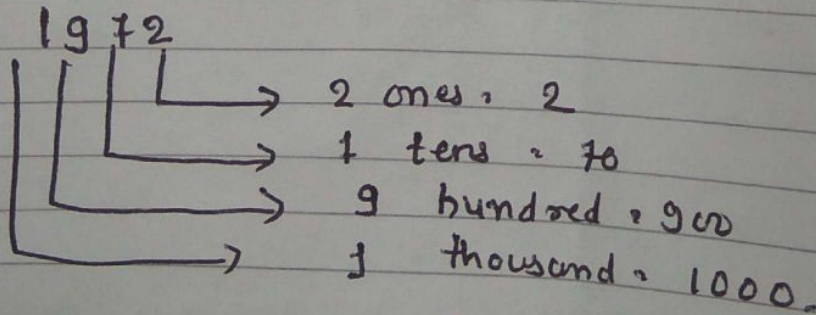 1972
2 ones = 2
7 tens = 70
9 hundred = 900
1 thousand = 1000.